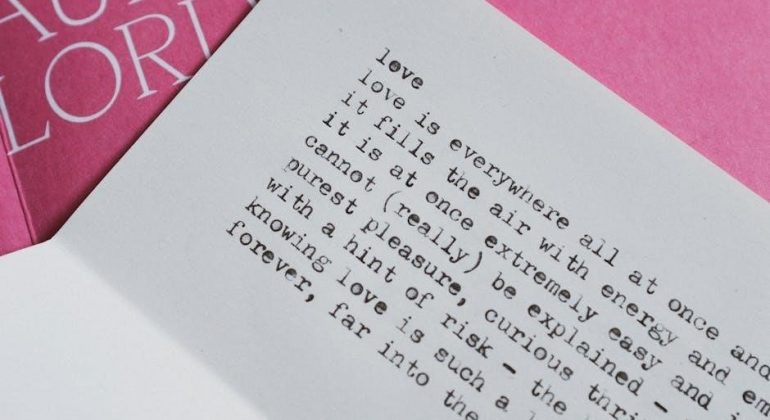 AU
LORD
love
love is everywhere all at once and
it fills the air with energy and em
it is at once extremely easy and i
cannot (really) be explained –
purest pleasure, curious thri
with a hint of risk – the
knowing love is such a
forever, far into the